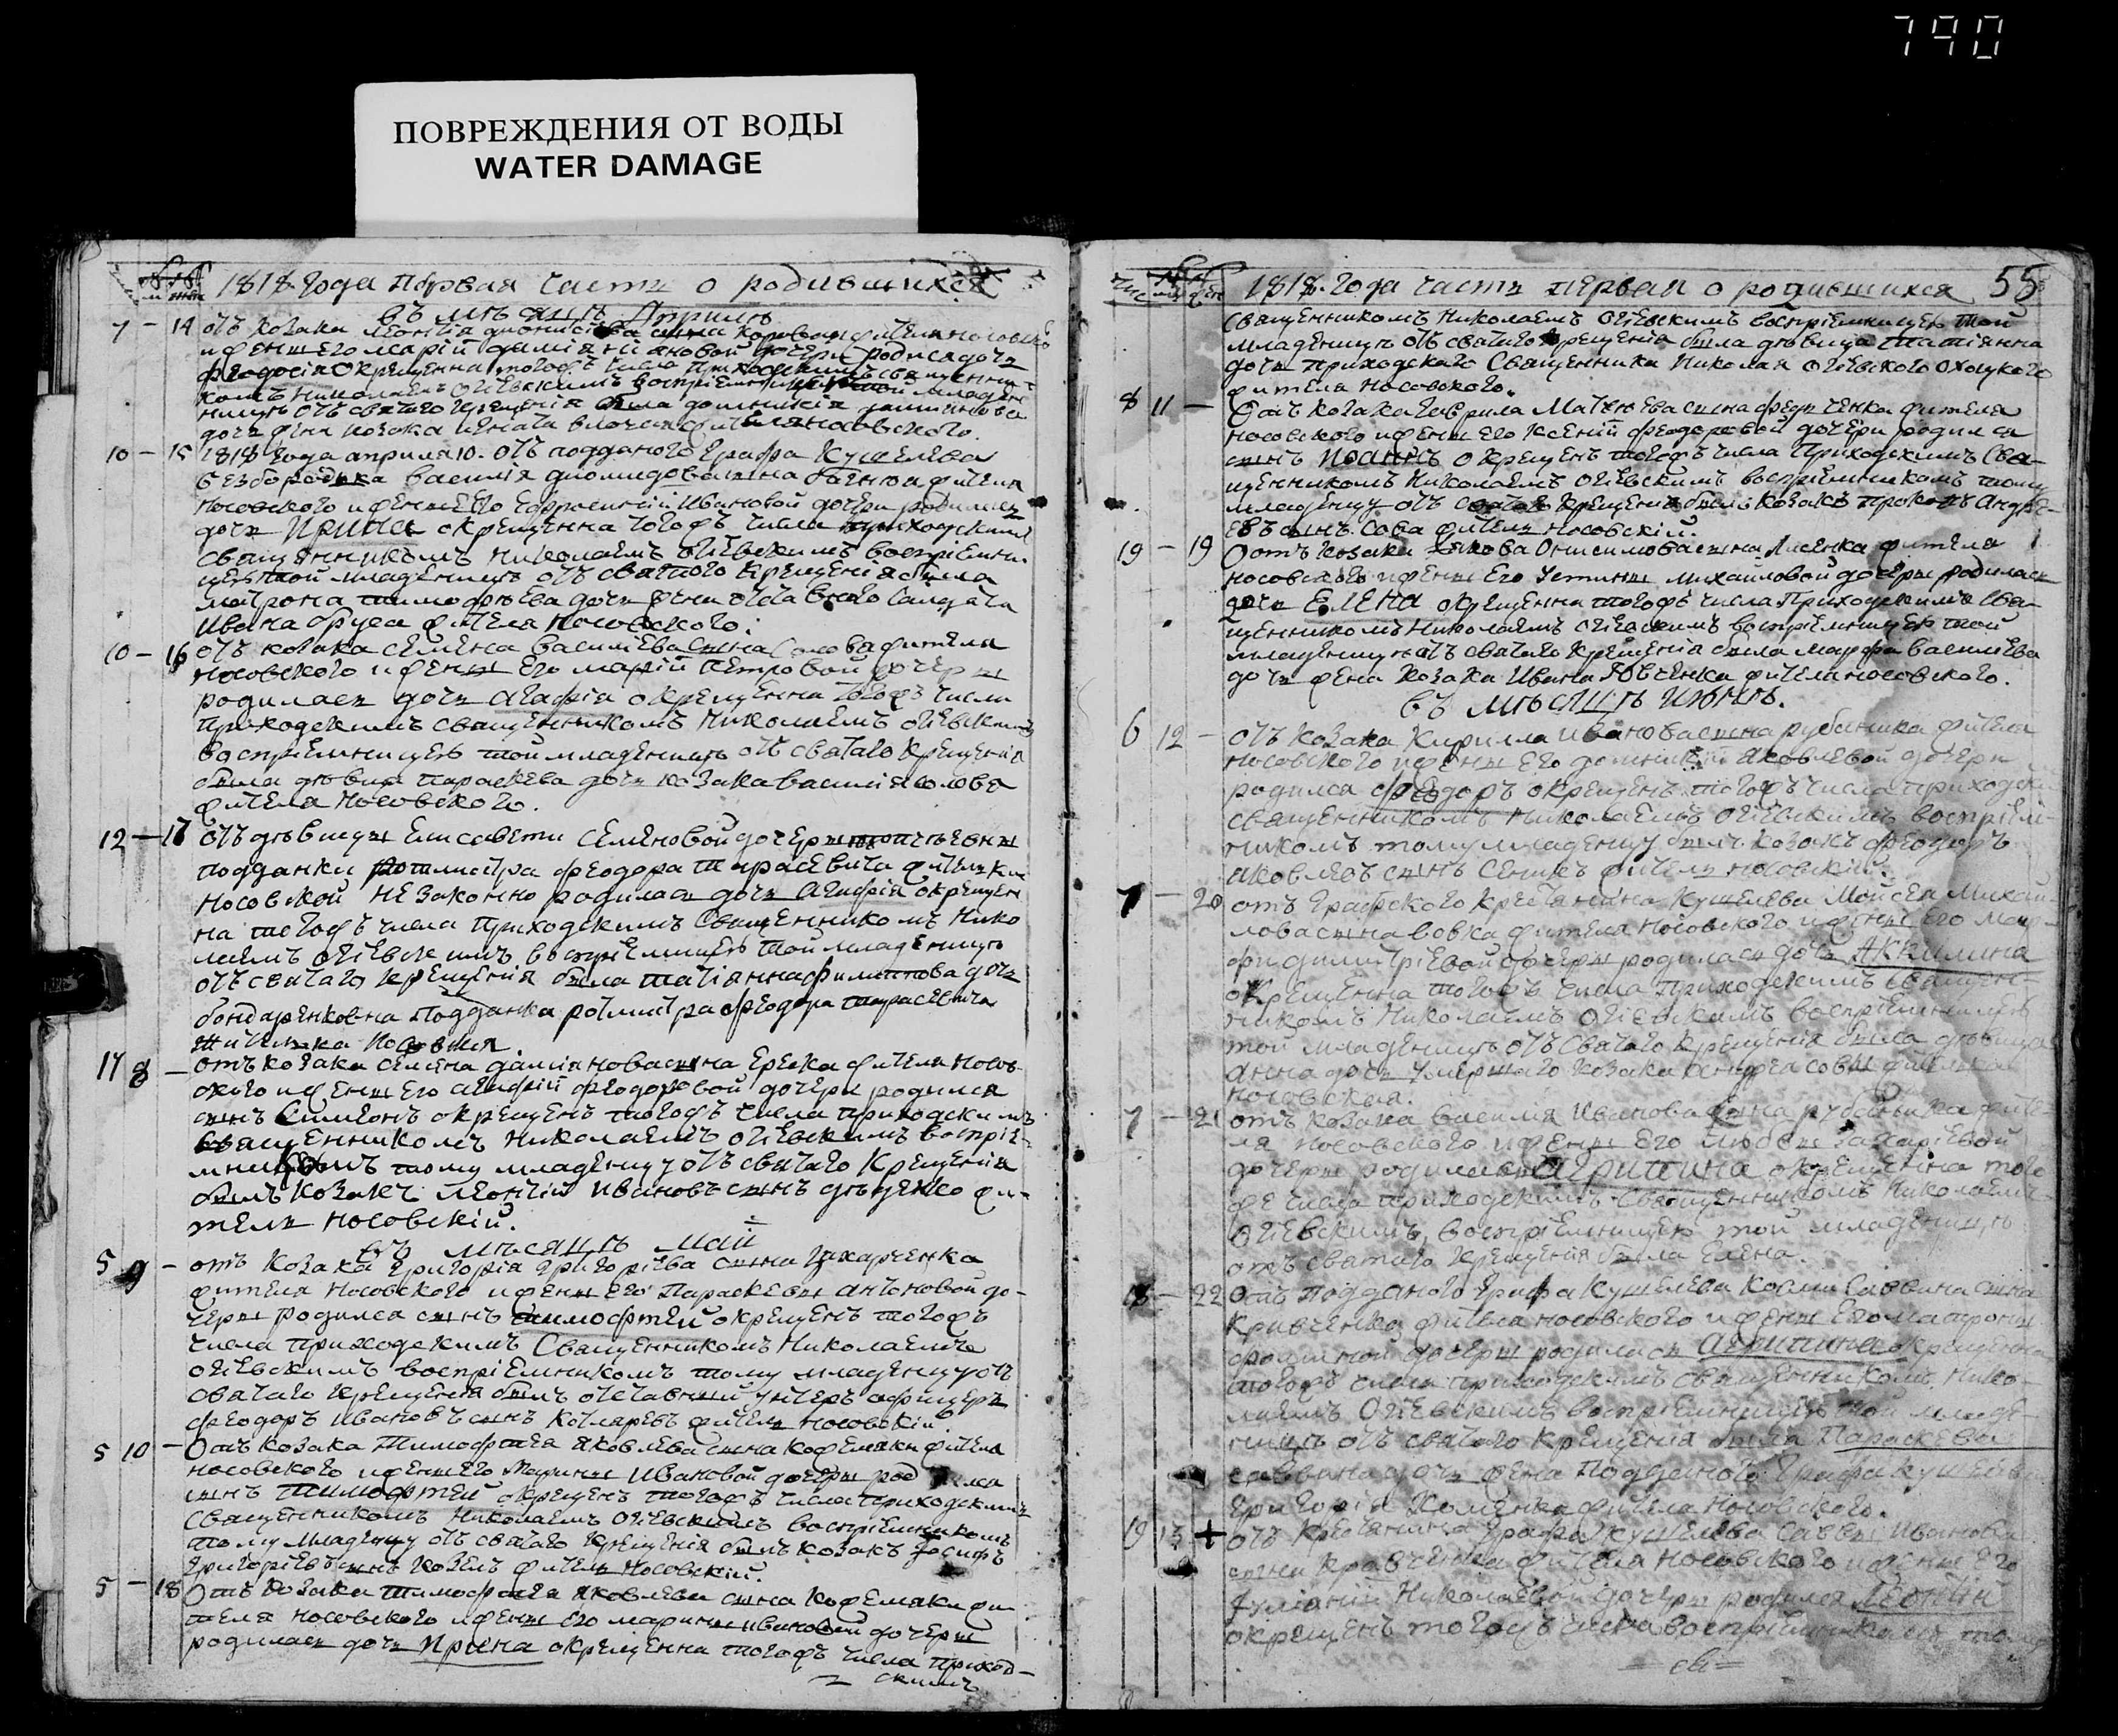 790
ПОВРЕЖДЕНИЯ ОТ ВОДЫ
WATER DAMAGE
1818 Года Первая часть о родившихся
въ мѣсяцѣ Априлѣ
7 - 14 отъ козака Леонтїя
и жены его Марїи дочери родися дочь
Феодосїя окрещенна тогожъ числа приходскимъ священни
комъ Николаемъ Огїевскимъ воспрїемницею той младен
ницѣ отъ святаго крещенїя была
дочь жена козака Игната жителя носовского.
10 - 15 1818 года априля 10. отъ подданого Графа Кушелева
Безбородька василїя дїомидова сына жителя
Носовского и жены его Ефросинїи Ивановой дочери родилась
дочь Ирина окрещенна тогожъ числа приходскимъ
священникомъ Николаемъ Огїевскимъ воспрїемни
цею той младенницѣ отъ святого крещенїя была
матрона тимофѣева дочь жена отставного салдата
Ивана бруса жителя Носовского.
10 - 16 отъ козака семена василїева сына жителя
Носовского и жены его марїи петровой дочеры
родилась дочь Агафїа окрещенна тогожъ числа
приходскимъ священникомъ Николаемъ Огїевскимъ
воспрїемницею той младенницѣ отъ святаго крещенїя
была дѣвица параскева дочь козака василїя
жителя Носовского.
12 - 17 отъ дѣвицы Елисавети семеновой дочеры
подданки ротмистра феодора Тарасевича жителки
Носовской незаконно родилась дочь Агафїя окрещен
на тогожъ числа приходскимъ Священникомъ Нико
лаемъ Огїевскимъ воспрїемницею той младенницѣ
отъ святаго крещенїя была татїянна филиппова дочь
бондаренковна подданка ротмистра феодора тарасевича
жителька Носовская.
17 8 - отъ козака семена дамїянова сына жителя Носов
ского и жены его Агафїи феодоровой дочери родился
сынъ Симеонъ окрещенъ тогожъ числа приходскимъ
священникомъ Николаемъ Огїевскимъ воспрїе-
мникомъ тому младенцу отъ святаго крещенїя
былъ козакъ Леонтїй Ивановъ сынъ жи-
тель Носовскїй.
въ мѣсяцѣ маи
5 9 - отъ Козака Григорїя Григорїева сына Захарченка
жителя Носовского и жены его Параскевы Антоновой до-
черы родился сынъ тимофтей окрещенъ тогожъ
числа приходскимъ Священникомъ Николаемъ
Огїевскимъ воспрїемникомъ тому младенцу отъ
святаго крещенїя былъ отставный унтеръ офицеръ
феодоръ Ивановъ сынъ Котляревъ житель Носовскїй
5 10 - Отъ козака Тимофтея Яковлева сына Кожемяки жителя
Носовского и жены его Марины Ивановой дочеры
сынъ тимофтей окрещенъ тогожъ числа приходскимъ
Священникомъ Николаемъ Огїевскимъ воспрїемникомъ
тому младенцу отъ святаго крещенїя былъ козакъ Іосифъ
Григорїевъ сынъ Козелъ житель Носовскїй.
5 - 18 Отъ козака тимофтея Яковлева сына Кожемяки жи
теля Носовского и жены его марины Ивановой дочеры
родилась дочь Ирина окрещенна тогожъ числа приход-
скимъ
1818. Года часть первая о родившихся 55
Священникомъ Николаемъ Огїевскимъ воспрїемницею той
младенницѣ отъ святаго крещенїя была дѣвица Татїянна
дочь приходского Священника Николая Огїевского
жителя Носовского.
8 11 - Отъ козака Гаврила Матвѣева сына жителя
Носовского и жены его Ксенїи феодоровой дочери родился
сынъ Иоаннъ окрещенъ тогожъ числа Приходскимъ Свя-
щенникомъ Николаемъ Огїевскимъ воспрїемникомъ тому
младенцу отъ святаго крещенїя былъ козакъ Прокопъ Андре-
евъ сынъ Сова житель Носовскїй.
19 - 19 Отъ козака Якова Онисимова сына Лисенка жителя
Носовского и жены Его Устины михайловой дочеры родилась
дочь Елена окрещенна тогожъ числа Приходскимъ Свя-
щенникомъ Николаемъ Огїевскимъ воспрїемницею той
младенницѣ отъ святаго крещенїя была марфа василїева
дочь жена козака Ивана жителя носовского.
въ мѣсяцѣ июнѣ.
6 12 - отъ козака Кирилла Иванова сына рубаника жителя
Носовского и жены его Яковлевой дочери
родился феодоръ окрещенъ тогожъ числа приходским
священникомъ Николаемъ Огїевскимъ воспрїем-
никомъ тому младенцу былъ козакъ феодоръ
Яковлевъ сынъ житель носовскїй.
7 - 20 отъ Графского крестянина Кушелева Мойсея Михай
лова сына вовка жителя Носовского и жены его Мар-
фи димитрїевой дочеры родилась дочь Акилина
окрещенна тогожъ числа приходскимъ священ-
никомъ Николаемъ Огїевскимъ воспрїемницею
той младенницѣ отъ святаго крещенїя была дѣвица
Анна дочь умершаго козака совы жителка
носовская.
7 - 21 отъ козака василїя Иванова сына рубаника жите-
ля носовского и жены Его Захарїевой
дочеры родилась Агрипина окрещенна того
же числа приходскимъ Священникомъ Николаемъ
Огїевскимъ, воспрїемницею той младенницѣ
отъ святаго крещенїя была Елена.
18 - 22 Отъ подданого Графа Кушелева Козми Саввина сына
Кривченка жителя носовского и жены Его матроны
дочеры родилась Агрипина окрещенна
тогожъ числа приходскимъ священникомъ Нико-
лаемъ Огїевскимъ воспрїемницею той младе-
нницѣ отъ святаго крещенїя была Параскева
саввина дочь жена подданого Графа Кушелева
Григорїя Хоменка жителя Носовского.
19 13 + отъ крестянина Графа Кушелева Саввы Иванова
сына Кравченка жителя Носовского и жены Его
Іулїанїи Николаевой дочеры родился Леонтїй
окрещенъ тогожъ числа воспрїемникомъ тому